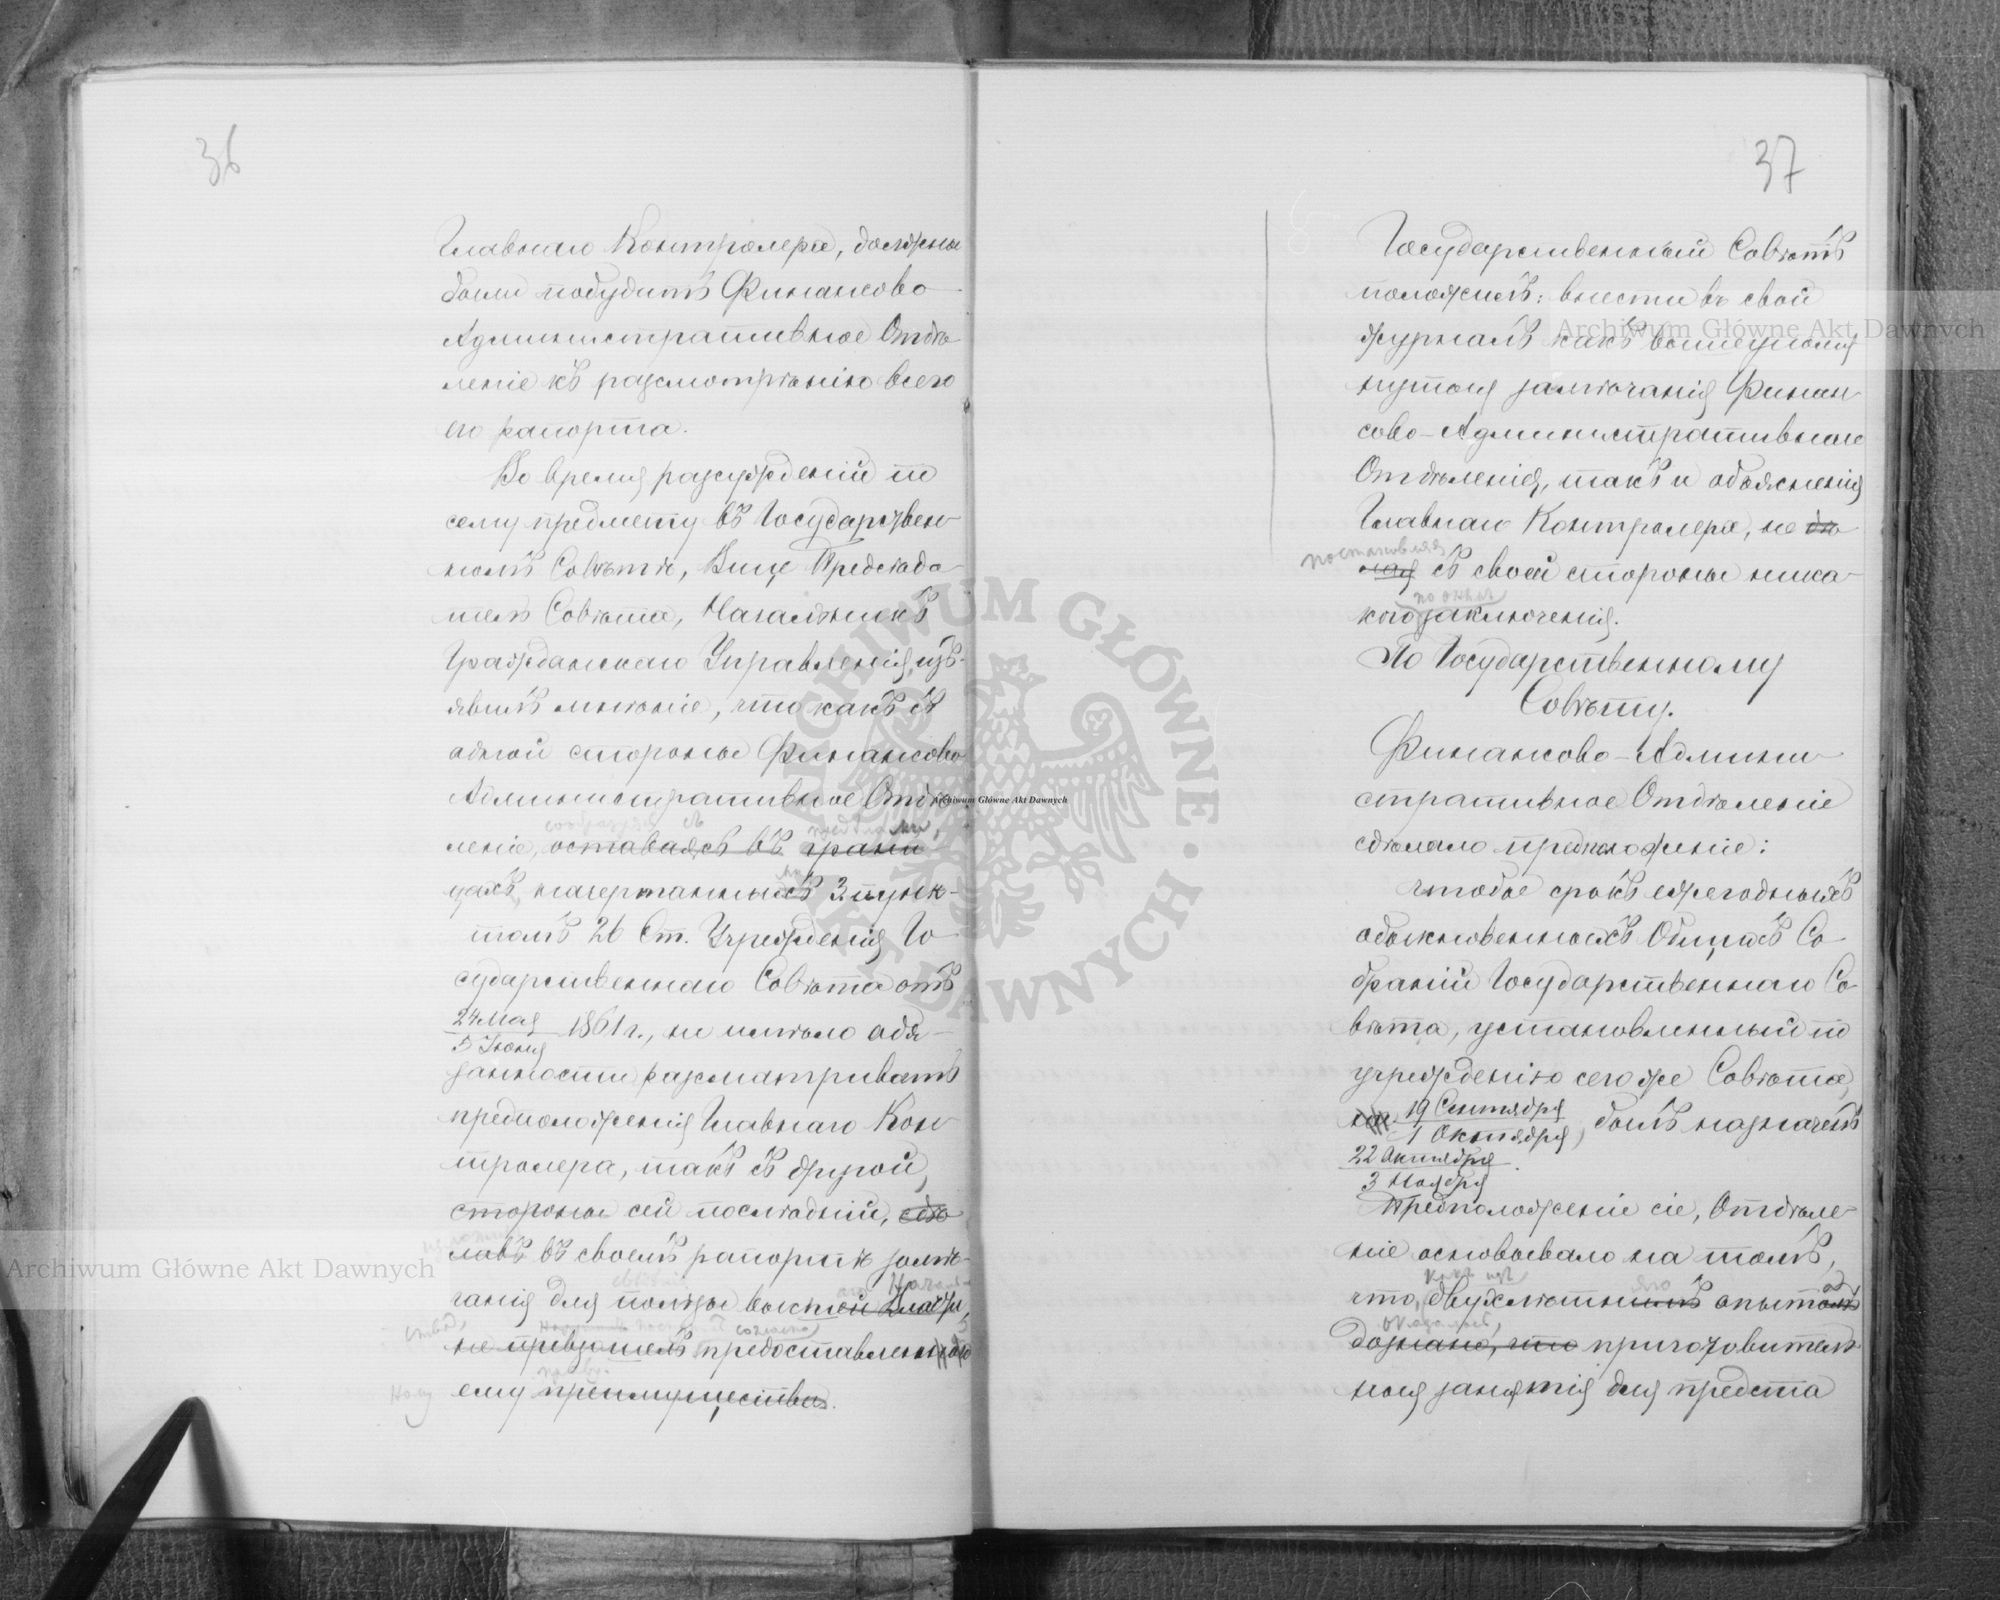 36
Главнаго Контролера, должны
были побудить Финансово
Административное Отдѣ
леніе къ разсмотрѣнію всего
его рапорта.
Во время разсужденій по
сему предмету въ Государствен
номъ Совѣтѣ, Вице Предсѣда
тель Совѣта, Начальникъ
Гражданскаго Управленія, изъ-
явилъ мнѣніе, что какъ съ
одной стороны Финансово
Административное Отдѣ
сообразуясь съ предѣлами,
леніе, оставаясь въ грани
цахъ, начертанныхъ 3 пунк-
томъ 26 Ст. Учрежденія Го
сударственнаго Совѣта отъ
24 Мая
5 Іюня
1861 г., не имѣло обя-
занности разсматривать
предположенія Главнаго Кон
тролера, такъ съ другой
стороны сей послѣдній, сдѣ
лавъ въ своемъ рапортѣ замѣ-
чанія для пользы высшей Власти,
не превзошелъ предоставленнаго
согласно
праву.
ему преимущества.
37
Государственный Совѣтъ
положилъ: внести въ свой
журналъ какъ вышеупомя
нутыя замѣчанія Финан
сово-Административнаго
Отдѣленія, такъ и объясненія
Главнаго Контролера, не дѣ
постановляя
лая съ своей стороны ника-
по онымъ
кого заключенія.
По Государственному
Совѣту.
Финансово-Админи
стративное Отдѣленіе
сдѣлало предположеніе:
чтобы срокъ ежегодныхъ
обыкновенныхъ Общихъ Со
браній Государственнаго Со
вѣта, установленный по
учрежденію сего же Совѣта,
на 19 Сентября
1 Октября, былъ назначенъ
22 Октября
3 Ноября.
Предположеніе сіе, Отдѣле-
ніе основывало на томъ,
какъ изъ
что, двухлѣтнимъ опытомъ
оказалось,
дознано, что приготовитель
ныя занятія для предста